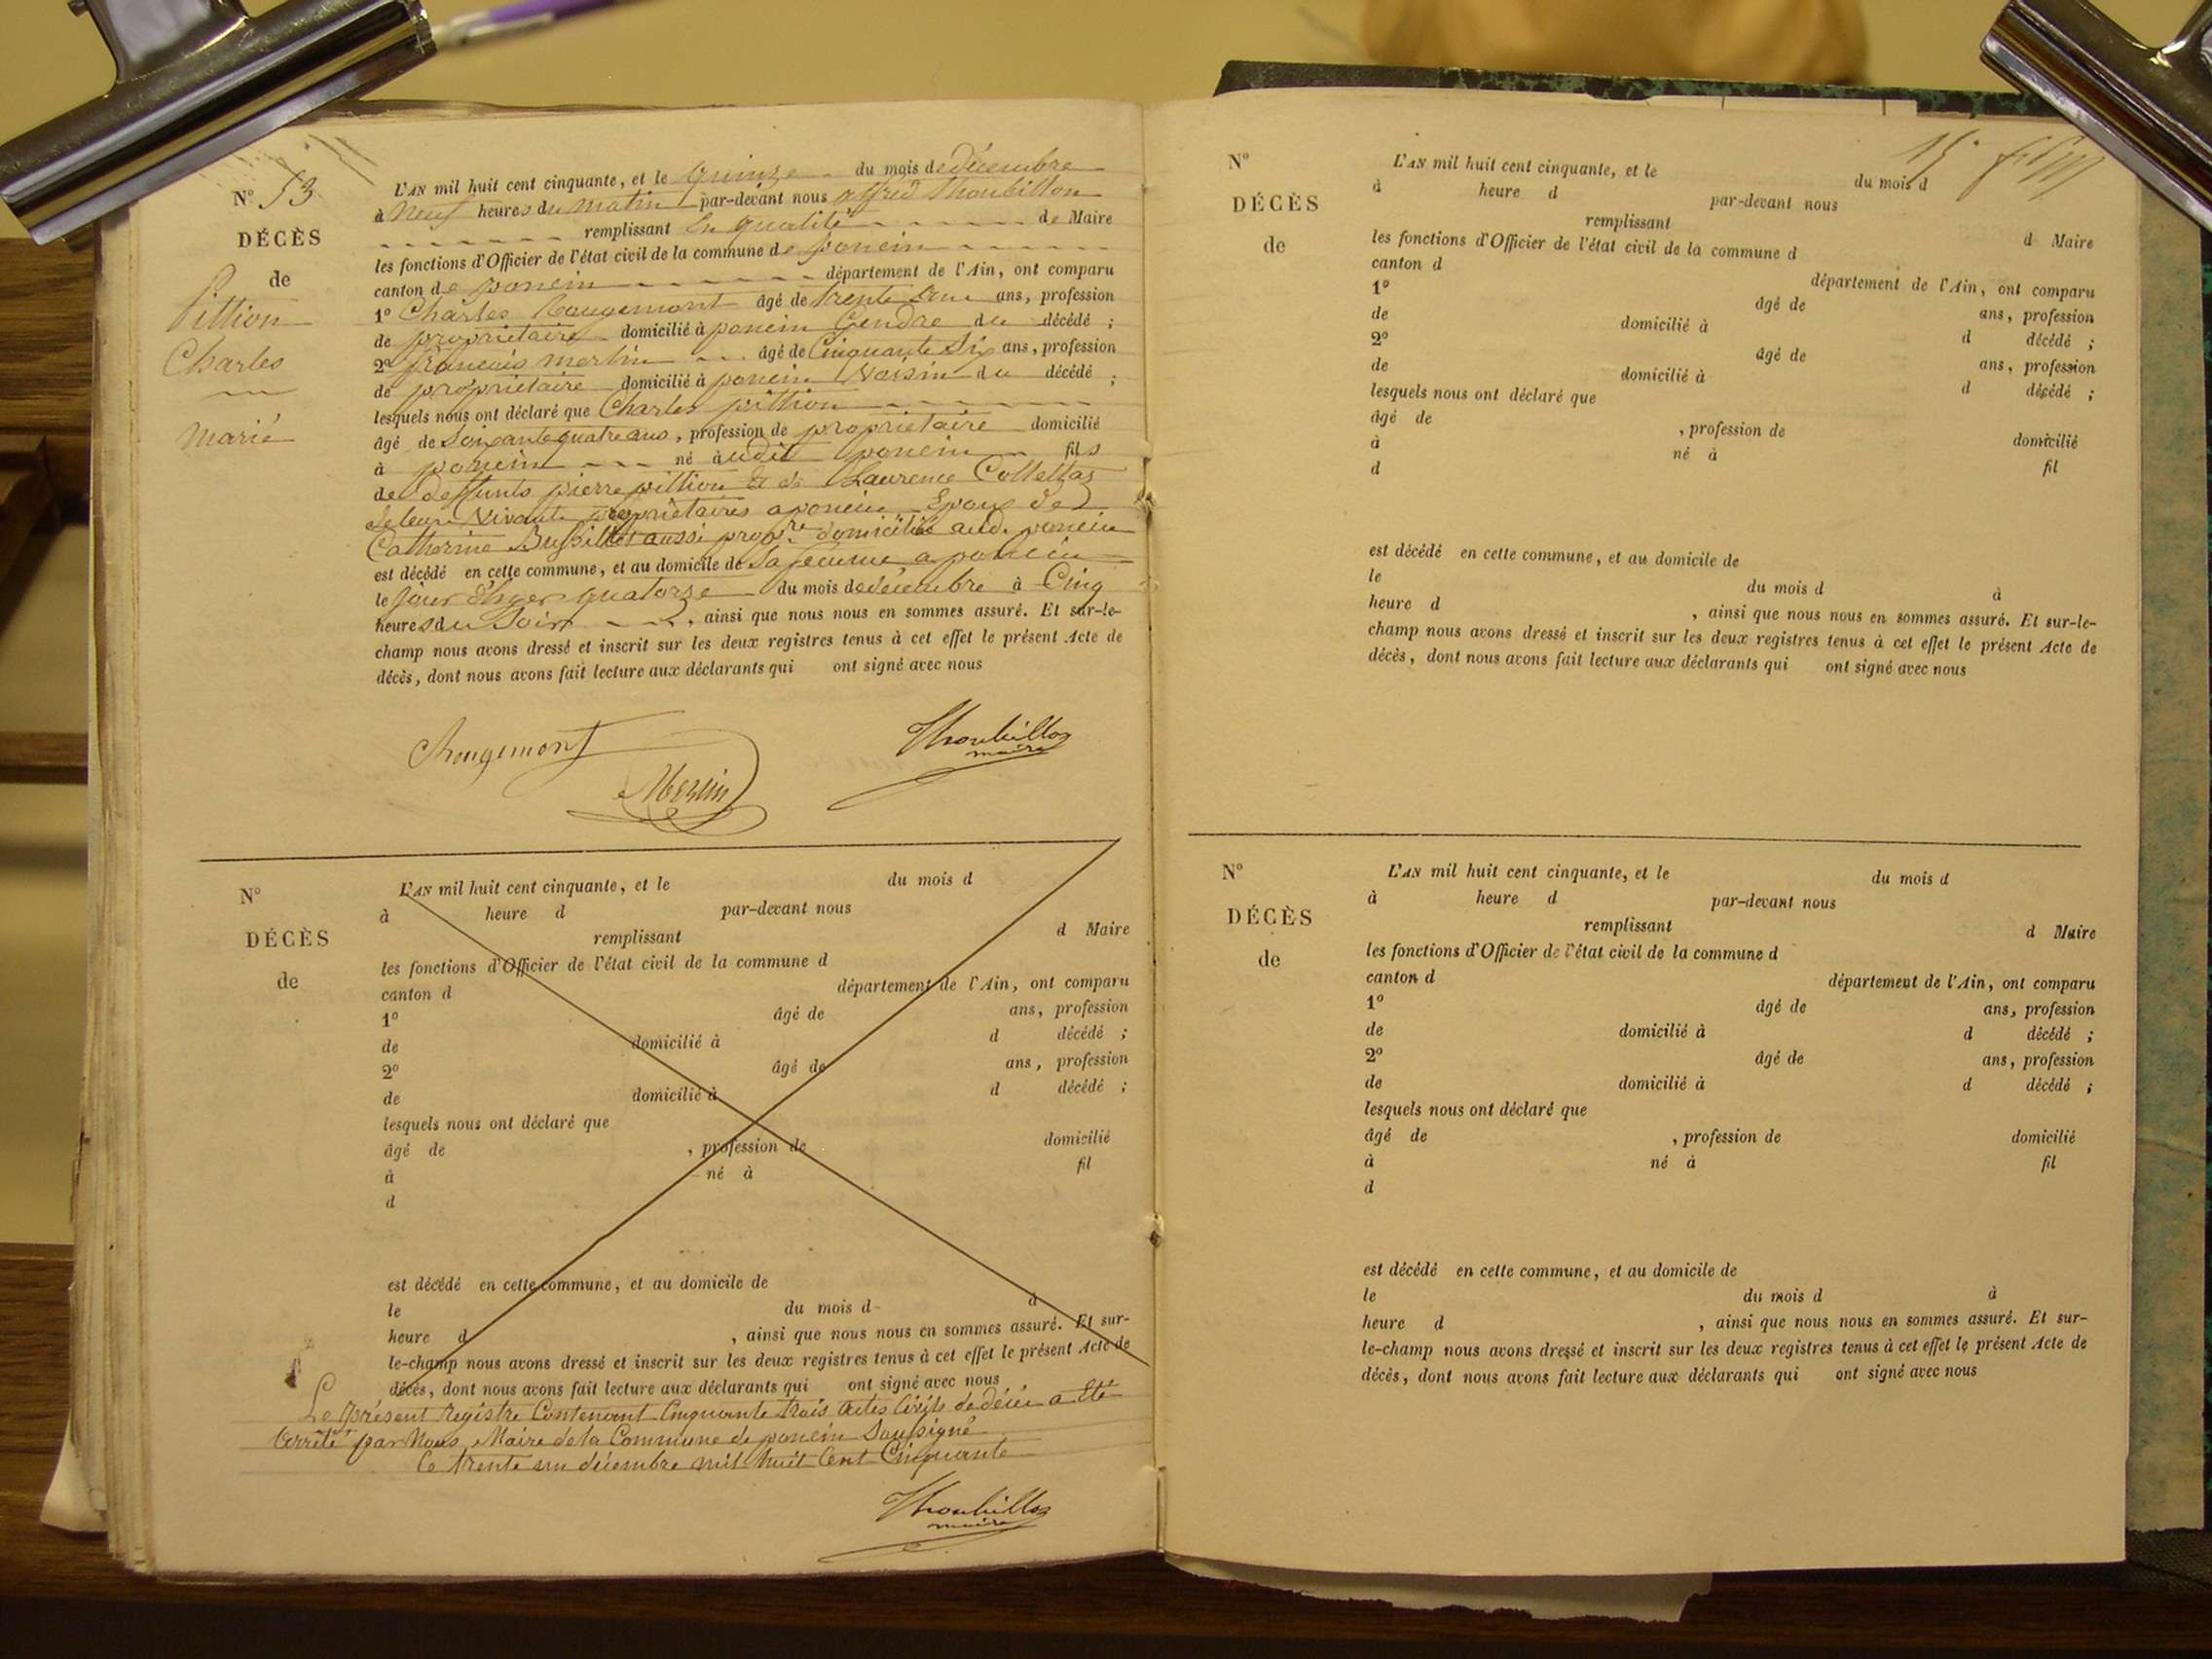 N° 53
DÉCÈS
de
Pittion
Charles
marié
L'AN mil huit cent cinquante, et le quinze du mois de décembre
à neuf heures du matin par-devant nous alfred Thoubillon
remplissant en qualité de Maire
les fonctions d'Officier de l'état civil de la commune de poncin
canton de poncin département de l'Ain, ont comparu
1° Charles Rougemont âgé de trente un ans, profession
de propriétaire domicilié à poncin Gendre du décédé ;
2° françois merlin âgé de Cinquante Six ans, profession
de propriétaire domicilié à poncin Voisin du décédé ;
lesquels nous ont déclaré que Charles pittion
âgé de Soixante quatre ans, profession de propriétaire domicilié
à poncin né audit poncin fils
de deffunts pierre pittion et de Laurence Collettaz
de leur Vivant propriétaires a poncin Epoux de
Catherine aussi prop.re domiciliée aud. poncin
est décédé en cette commune, et au domicile de Sa femme a poncin
le jour d'hyer quatorze du mois de décembre à Cinq
heures du Soir , ainsi que nous nous en sommes assuré. Et sur-le-
champ nous avons dressé et inscrit sur les deux registres tenus à cet effet le présent Acte de
décès, dont nous avons fait lecture aux déclarants qui ont signé avec nous
Crougemont
Merlin
Thoubillon
maire
N°
DÉCÈS
de
L'AN mil huit cent cinquante, et le du mois d
à heure d par-devant nous
remplissant d Maire
les fonctions d'Officier de l'état civil de la commune d
canton d département de l'Ain, ont comparu
1° âgé de ans, profession
de domicilié à d décédé ;
2° âgé de ans, profession
de domicilié à d décédé ;
lesquels nous ont déclaré que
âgé de , profession de domicilié
à né à fil
d
est décédé en cette commune, et au domicile de
le du mois d à
heure d , ainsi que nous nous en sommes assuré. Et sur-
le-champ nous avons dressé et inscrit sur les deux registres tenus à cet effet le présent Acte de
décès, dont nous avons fait lecture aux déclarants qui ont signé avec nous
Le présent registre Contenant Cinquante trois actes Civils de décès a été
arrêté par Nous, Maire de la Commune de poncin Soussigné
Ce trente un décembre mil huit Cent Cinquante
Thoubillon
maire
N°
DÉCÈS
de
L'AN mil huit cent cinquante, et le du mois d
à heure d par-devant nous
remplissant d Maire
les fonctions d'Officier de l'état civil de la commune d
canton d département de l'Ain, ont comparu
1° âgé de ans, profession
de domicilié à d décédé ;
2° âgé de ans, profession
de domicilié à d décédé ;
lesquels nous ont déclaré que
âgé de , profession de domicilié
à né à fil
d
est décédé en cette commune, et au domicile de
le du mois d à
heure d , ainsi que nous nous en sommes assuré. Et sur-le-
champ nous avons dressé et inscrit sur les deux registres tenus à cet effet le présent Acte de
décès, dont nous avons fait lecture aux déclarants qui ont signé avec nous
N°
DÉCÈS
de
L'AN mil huit cent cinquante, et le du mois d
à heure d par-devant nous
remplissant d Maire
les fonctions d'Officier de l'état civil de la commune d
canton d département de l'Ain, ont comparu
1° âgé de ans, profession
de domicilié à d décédé ;
2° âgé de ans, profession
de domicilié à d décédé ;
lesquels nous ont déclaré que
âgé de , profession de domicilié
à né à fil
d
est décédé en cette commune, et au domicile de
le du mois d à
heure d , ainsi que nous nous en sommes assuré. Et sur-
le-champ nous avons dressé et inscrit sur les deux registres tenus à cet effet le présent Acte de
décès, dont nous avons fait lecture aux déclarants qui ont signé avec nous